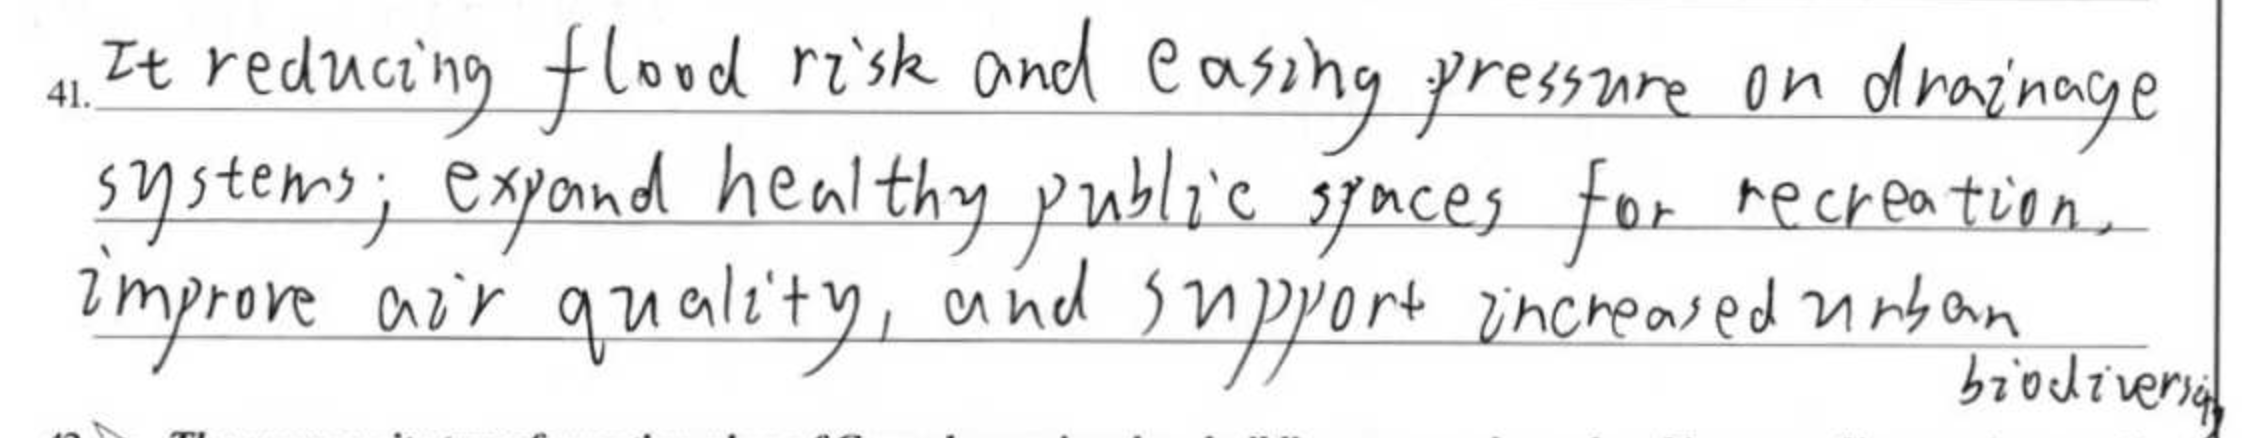 41. It reducing flood risk and easing pressure on drainage
systems; expand healthy public spaces for recreation,
improve air quality, and support increased urban
biodiversity